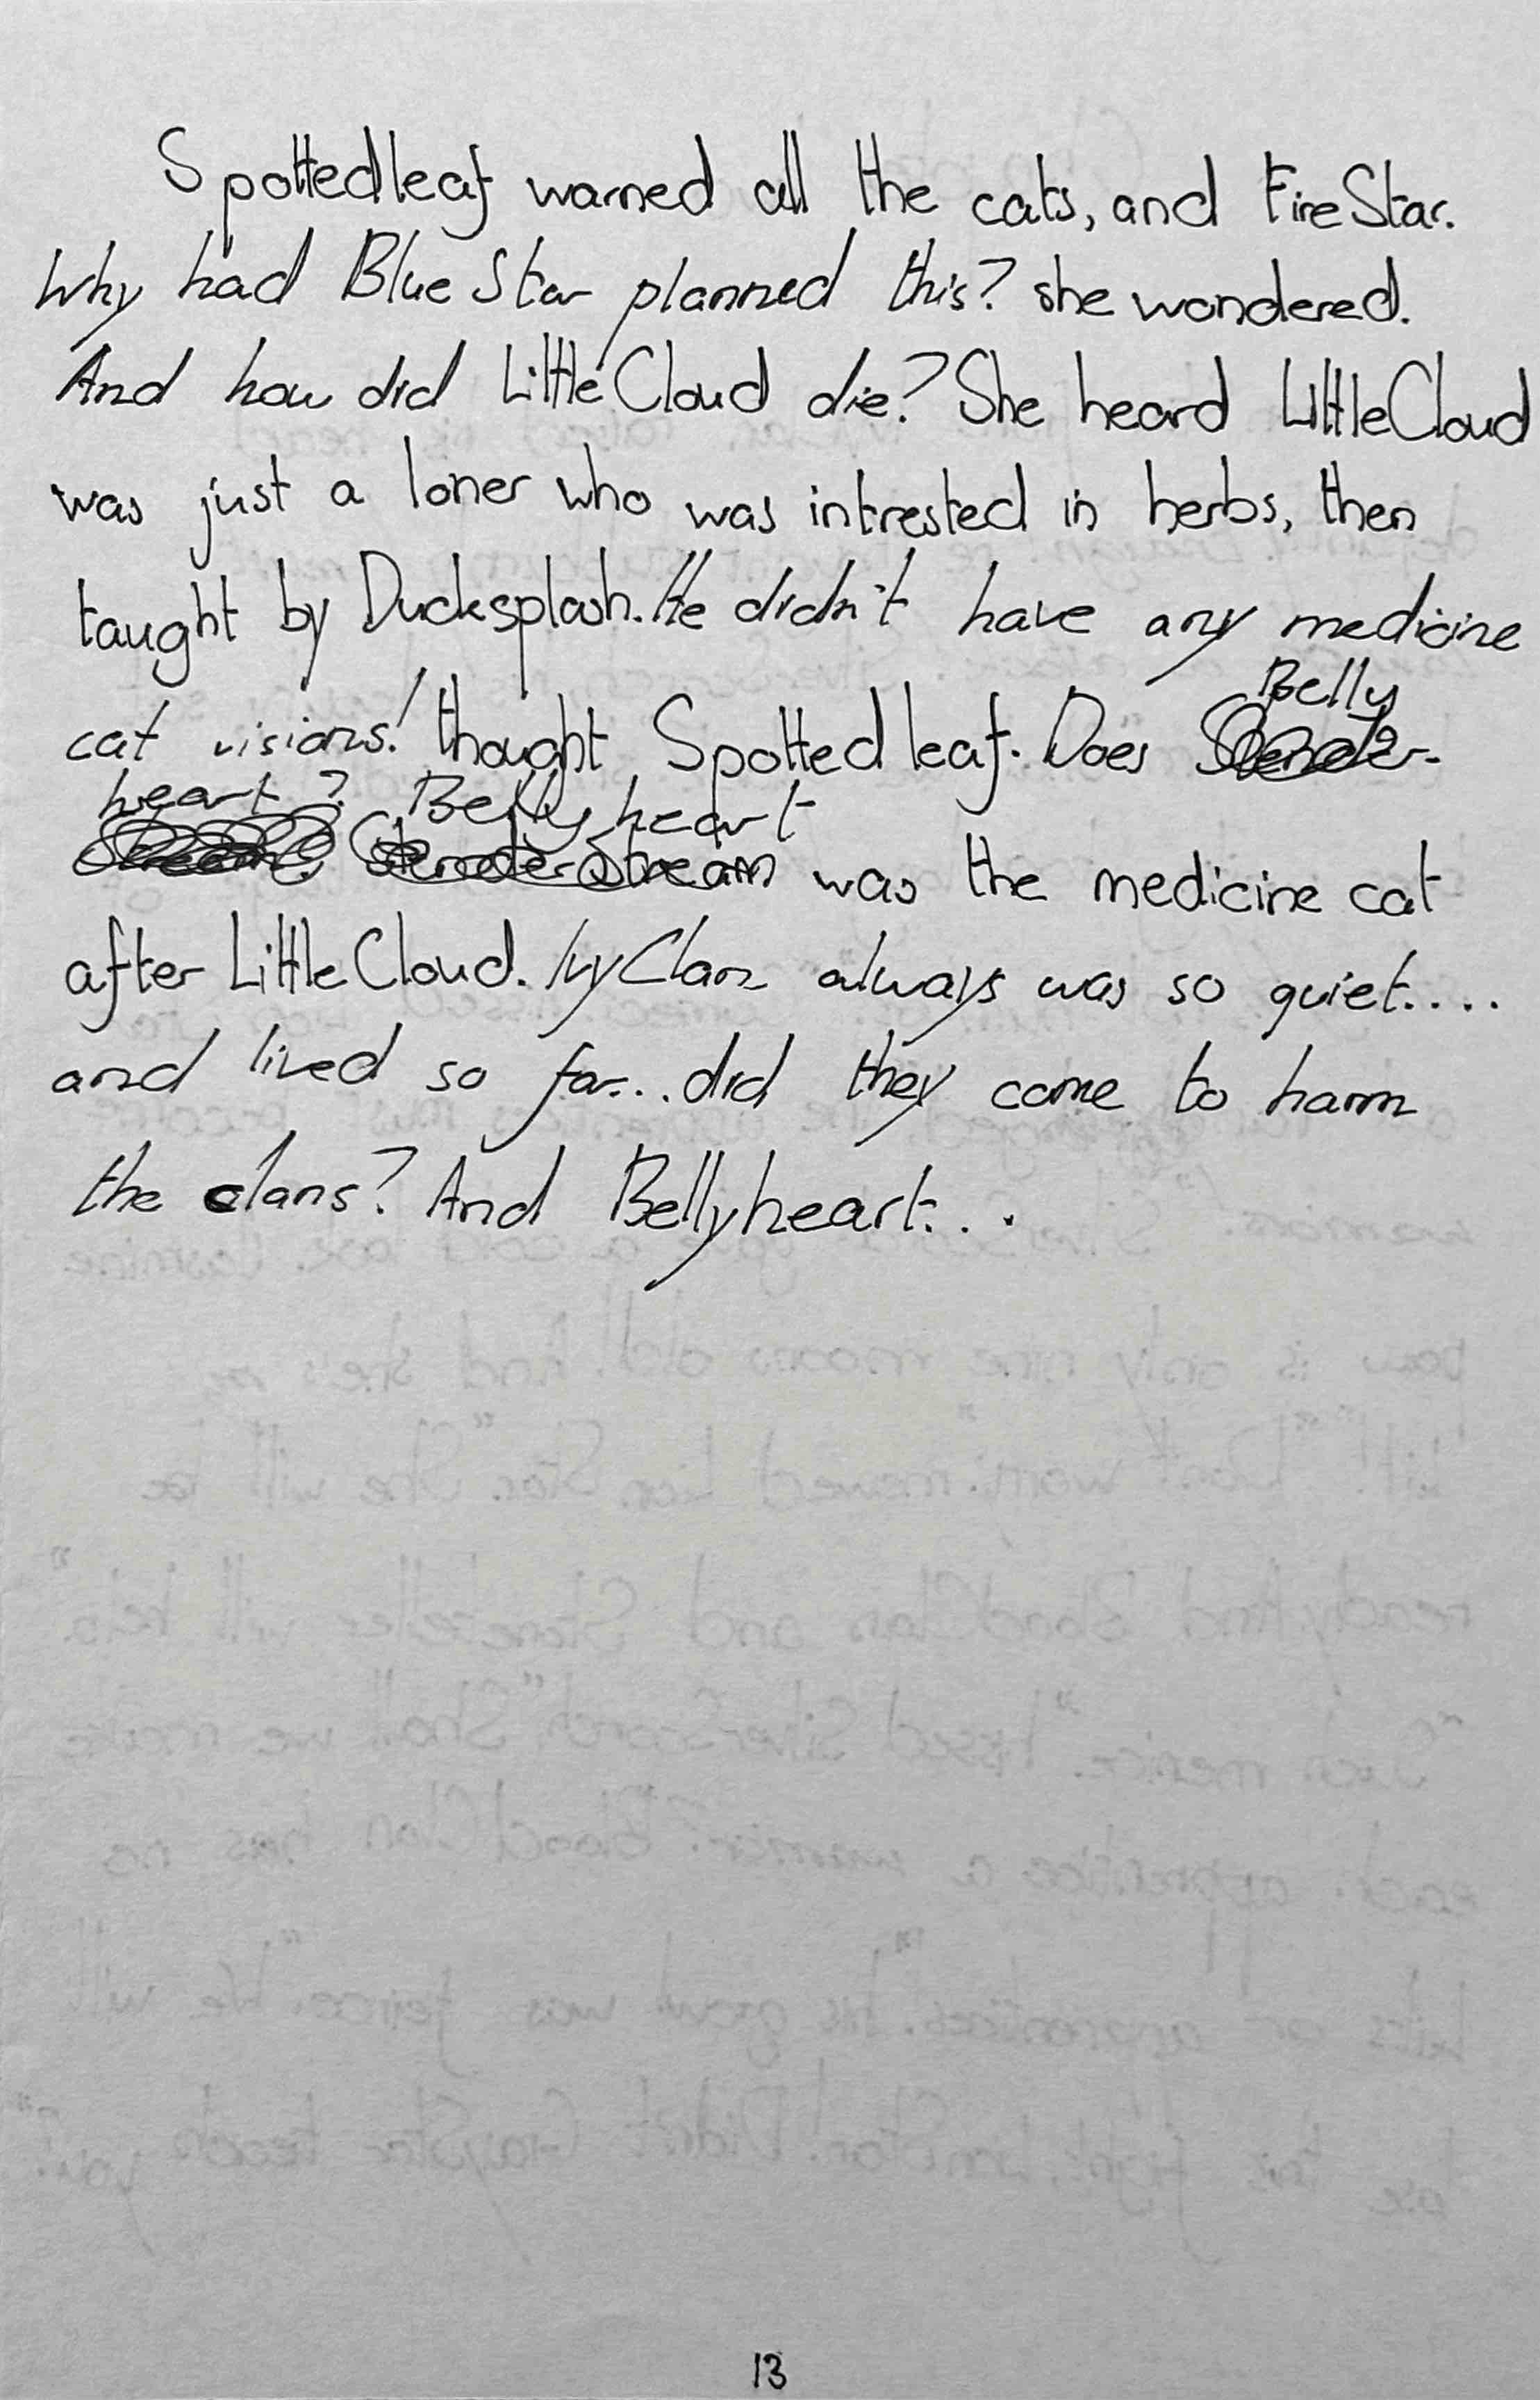 Spottedleaf warned all the cats, and FireStar.
Why had BlueStar planned this? she wondered.
And how did LittleCloud die? She heard LittleCloud
was just a loner who was intrested in herbs, then
taught by Ducksplash. He didn't have any medicine
cat visions! thought Spottedleaf. Does Belly
heart? Bellyheart was the medicine cat
after LittleCloud. IvyClan always was so quiet....
and lived so far... did they come to harm
the clans? And Bellyheart...
13